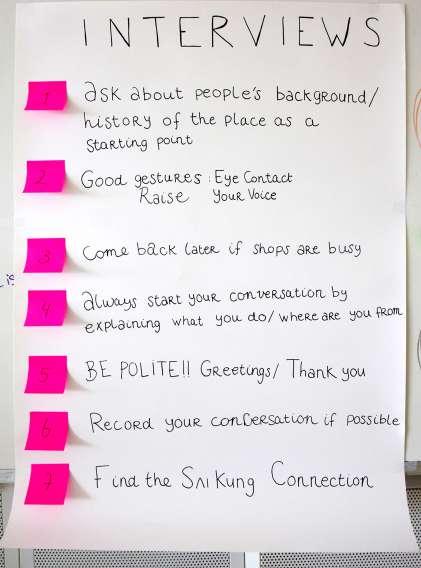 INTERVIEWS
1 ask about people's background/
history of the place as a
starting point
2 Good gestures : Eye Contact
Raise Your Voice
3 Come back later if shops are busy
4 always start your conversation by
explaining what you do/ where are you from
5 BE POLITE!! Greetings/ Thank you
6 Record your conversation if possible
7 Find the Sai Kung Connection
is